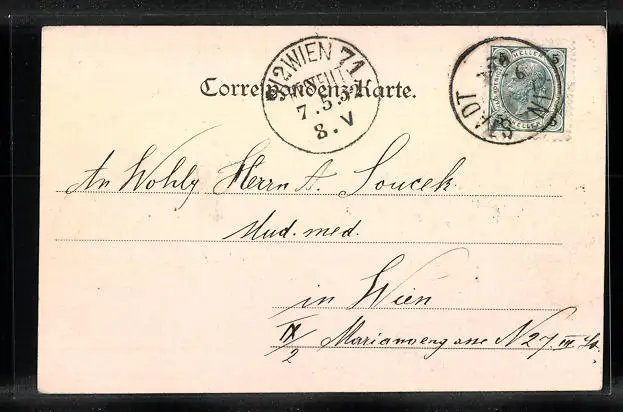 Correspondenz-Karte.
WIEN 71
7.5.
8.V
STADT
HELLER
5 5
An Wohlg Herrn A. Soucek
Stud. med.
in Wien
IX/2 Mariannengasse N 27. III St.